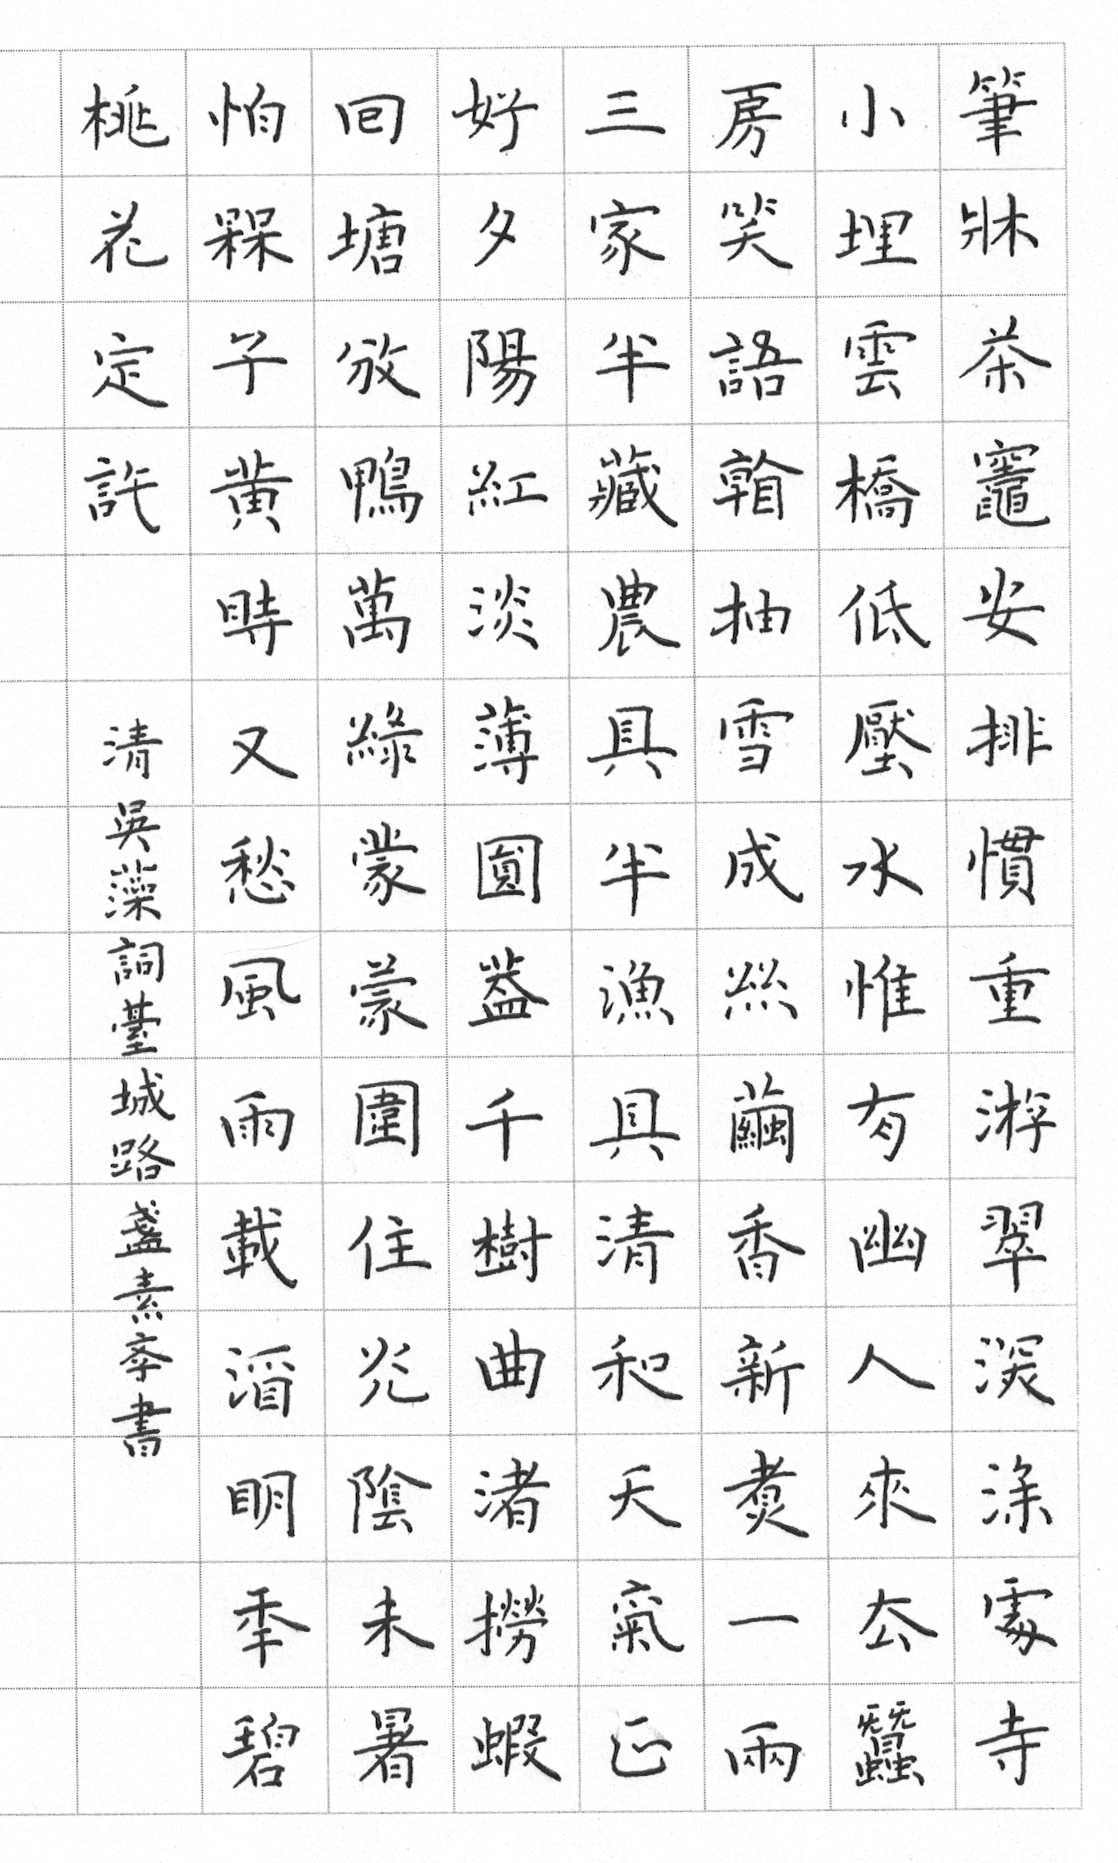 筆牀茶竈安排慣重游翠深深處寺
小埋雲橋低壓水惟有幽人來去蠶
房笑語看抽雪成絲繭香新煑一兩
三家半藏農具半漁具清和天氣正
好夕陽紅淡薄圓葢千樹曲渚撈蝦
回塘放鴨萬綠蒙蒙圍住光陰未暑
怕槑子黃時又愁風雨載酒明季碧
桃花定許
清吳藻詞臺城路盞素書